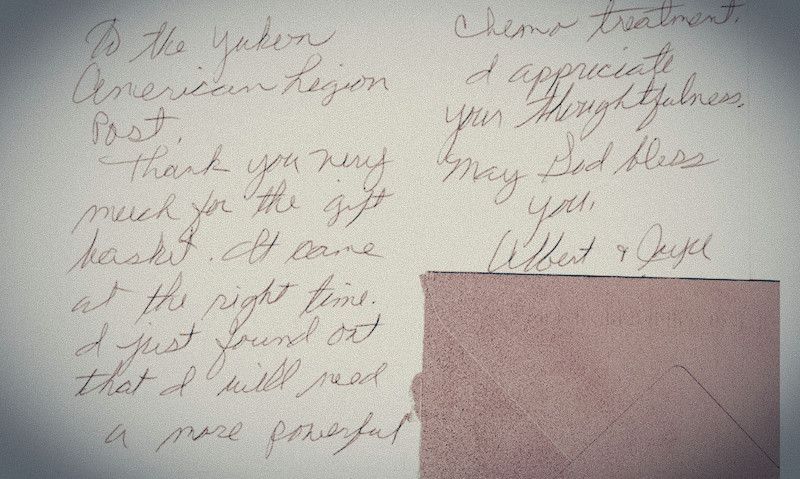 To the Yukon
American Legion
Post,
Thank you very
much for the gift
basket. It came
at the right time.
I just found out
that I will need
a more powerful
Chemo treatment.
I appreciate
your thoughtfulness.
May God bless
you,
Albert & Joyce